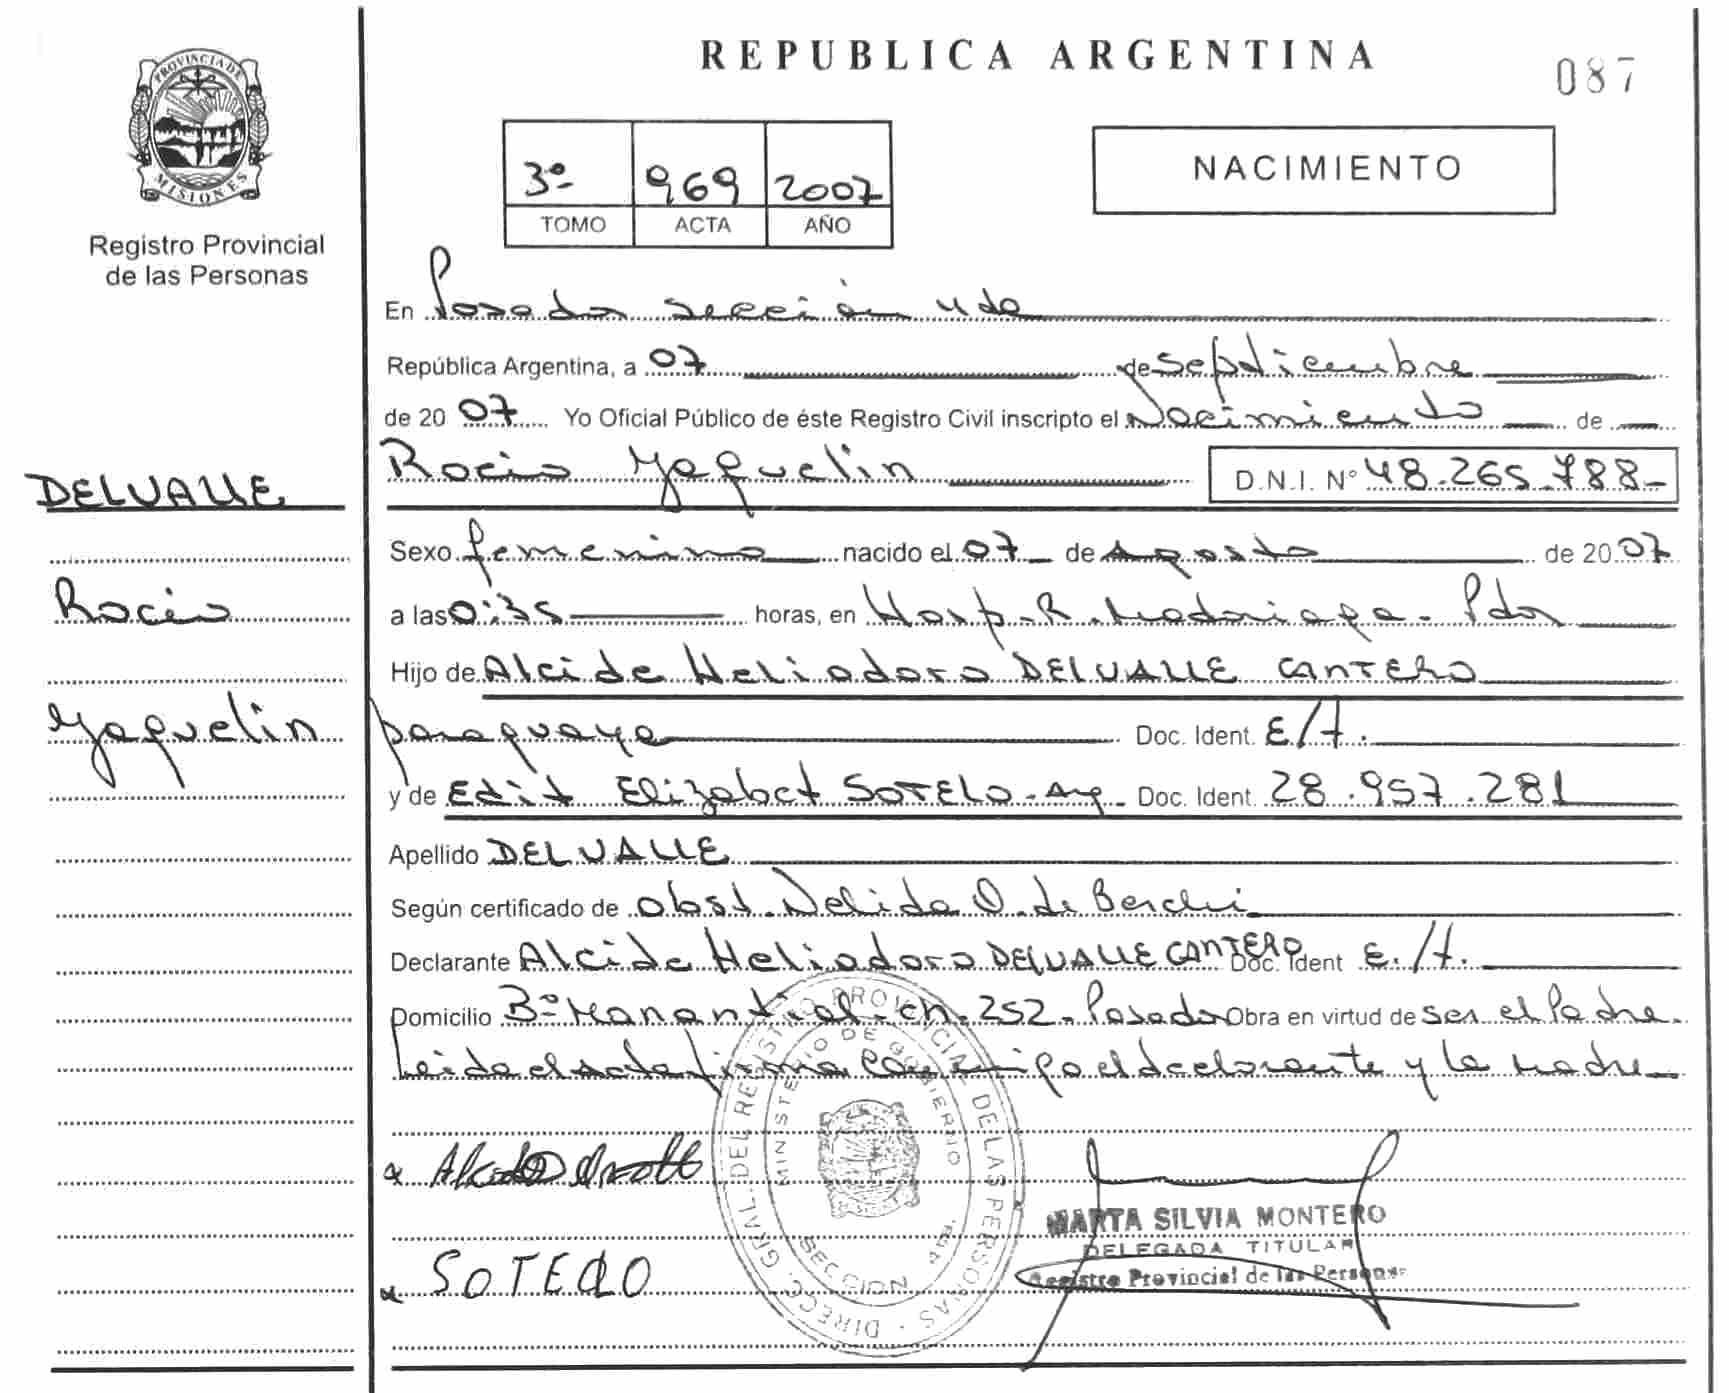 PROVINCIA DE
MISIONES
Registro Provincial
de las Personas
DELVALLE
Rocio
Yaquelin
REPUBLICA ARGENTINA
087
3º 969 2007
TOMO ACTA AÑO
NACIMIENTO
En Posadas sección 4ta
República Argentina, a 07 de Septiembre
de 2007 Yo Oficial Público de éste Registro Civil inscripto el Nacimiento de
Rocio Yaquelin D.N.I. Nº 48.265.788-
Sexo femenino nacido el 07 de Agosto de 2007
a las 0:35 horas, en Hosp. R. Madariaga - Pdas
Hijo de Alcide Heliodoro DELVALLE CANTERO
paraguayo Doc. Ident. E/T.
y de Edit Elizabet SOTELO - Arg. Doc. Ident. 28.957.281
Apellido DELVALLE
Según certificado de obst. Nelida O. de Berchi
Declarante Alcide Heliodoro DELVALLE CANTERO Doc. Ident E./T.
Domicilio Bº Manantial - ch. 252 - Posadas Obra en virtud de ser el Padre.
Leida el acta firma conmigo el declarante y la madre
DIREC. GRAL. DEL REGISTRO PROVINCIAL DE LAS PERSONAS
MINISTERIO DE GOBIERNO
SECCION 4ta.
SOTELO
MARTA SILVIA MONTERO
DELEGADA TITULAR
Registro Provincial de las Personas